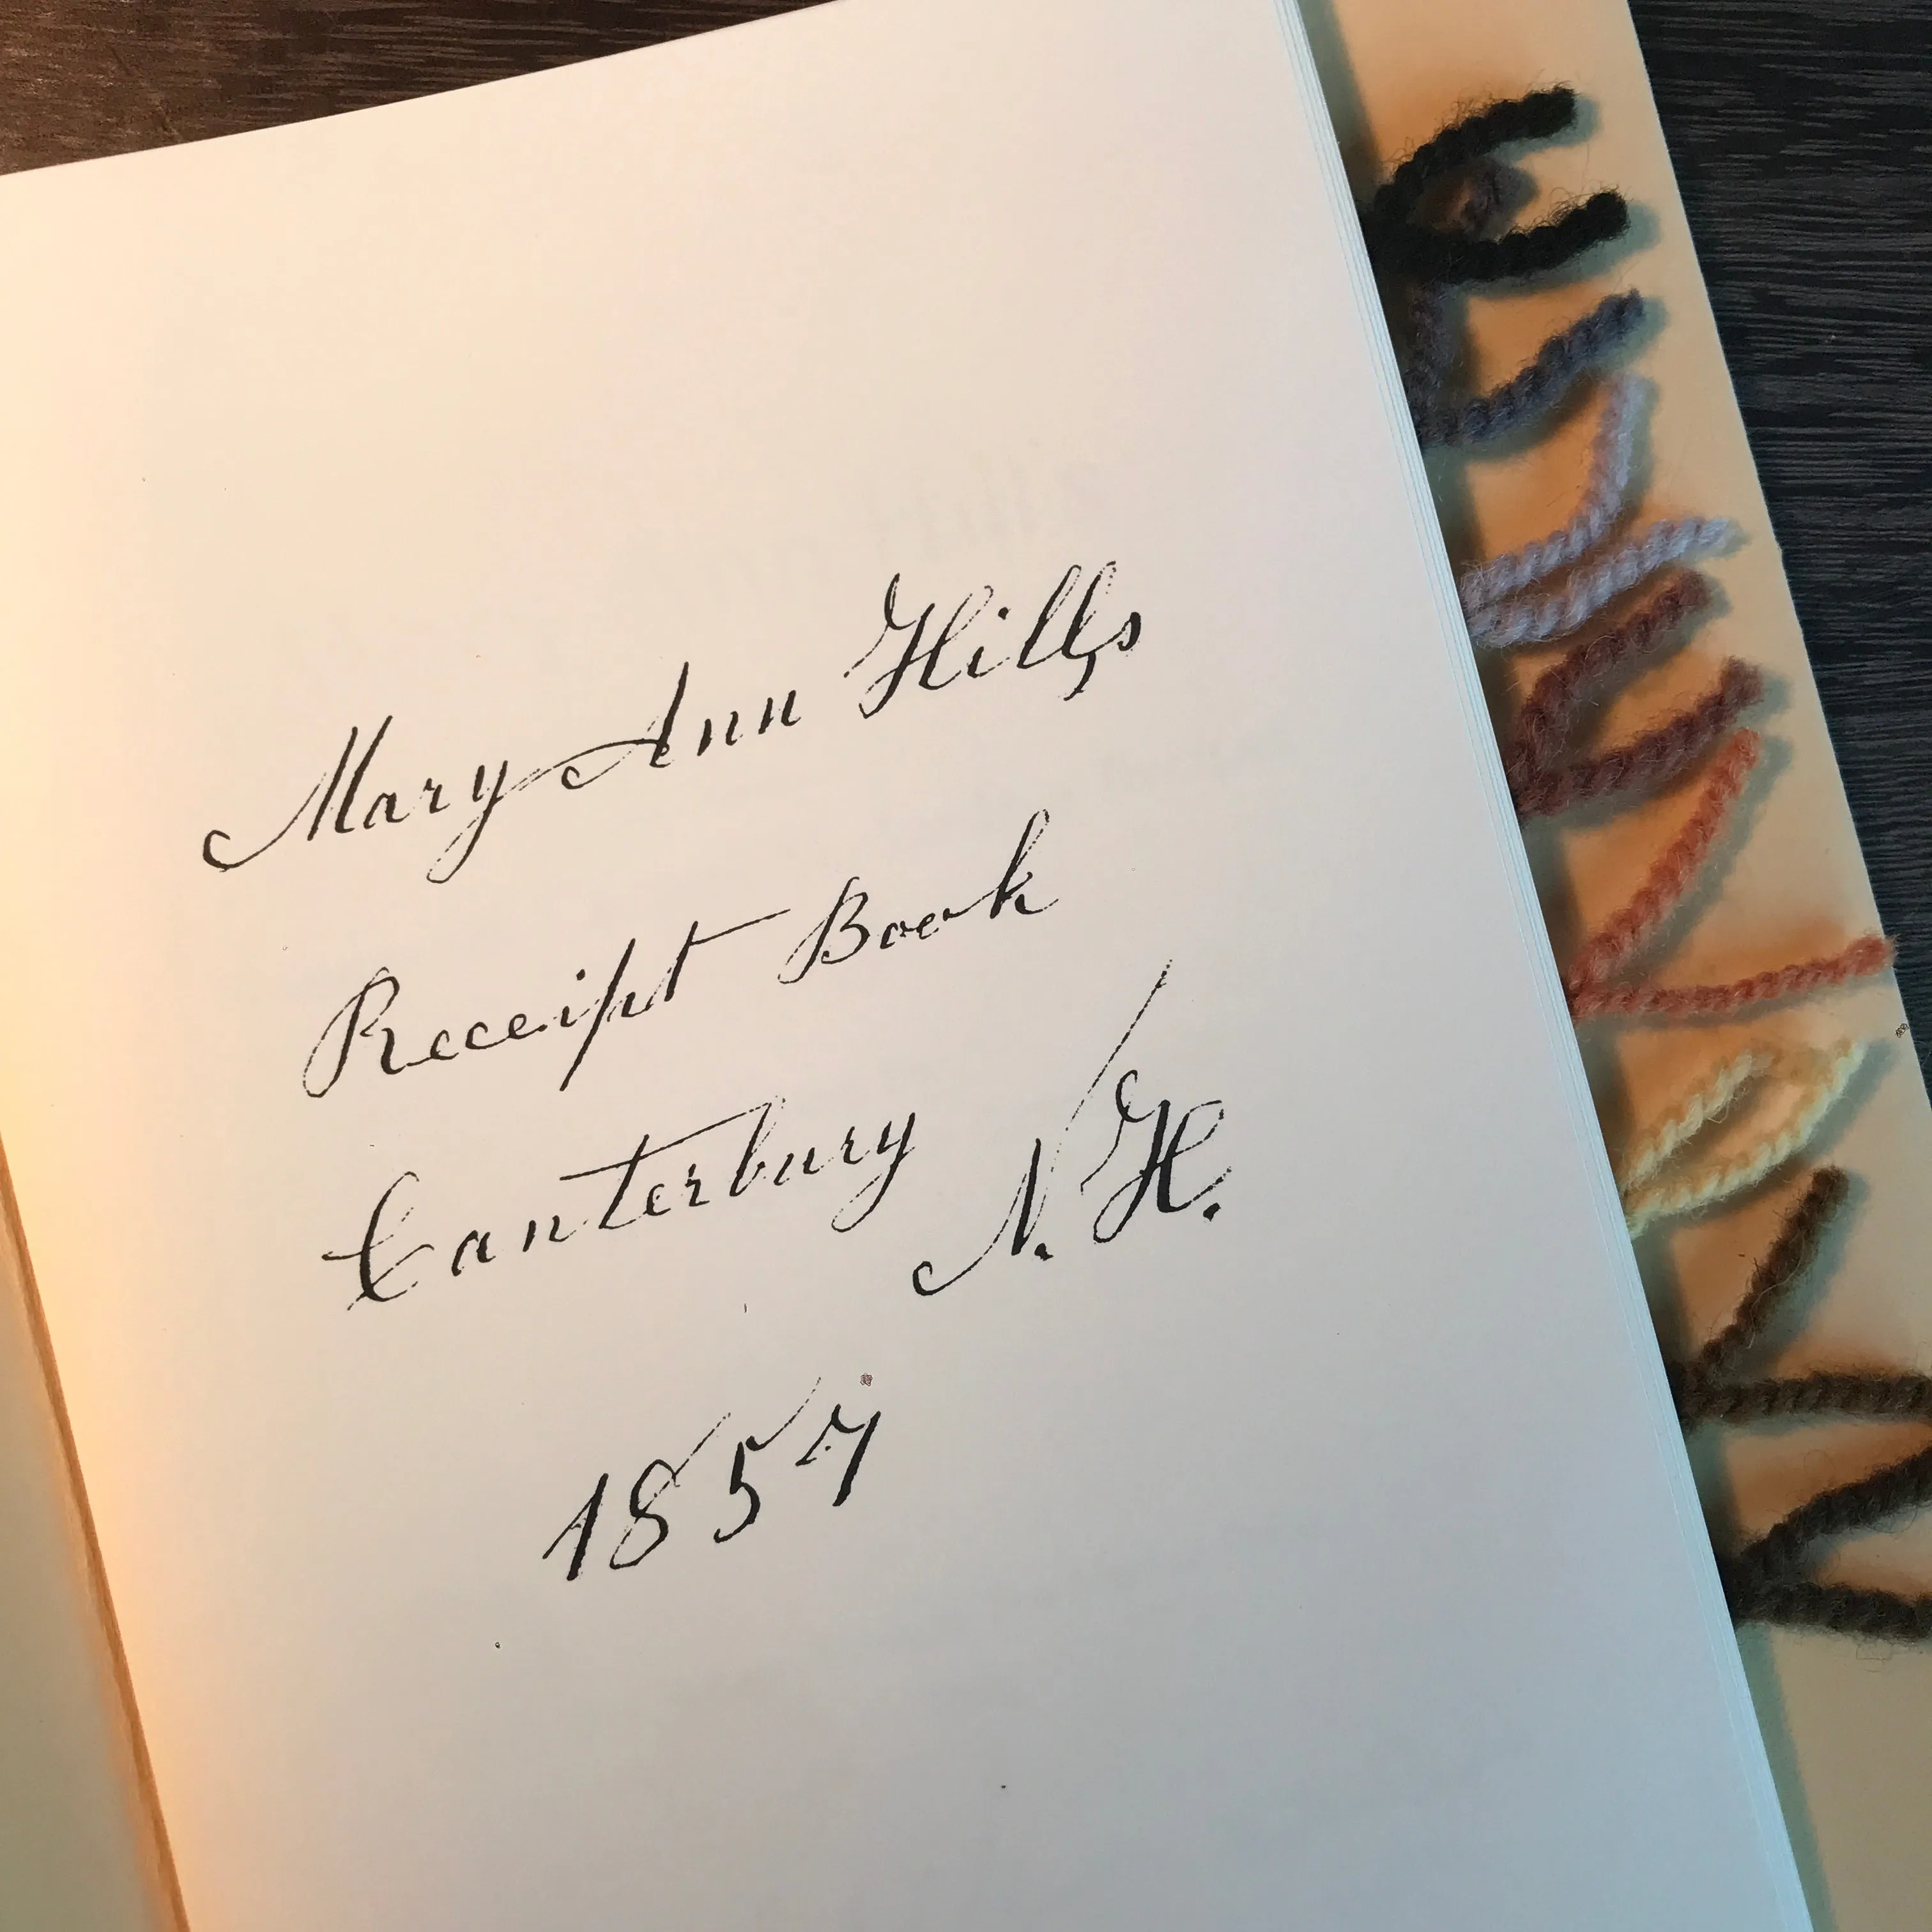 Mary Ann Hills
Receipt Book
Canterbury N. H.
1857